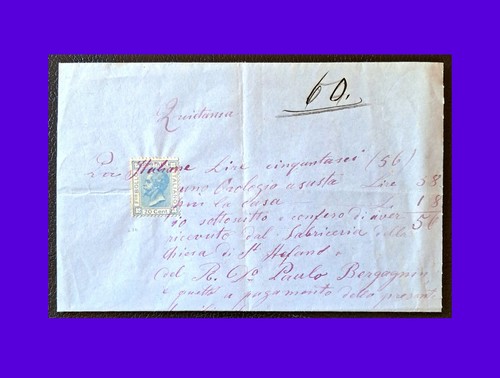 60.
Quietanza
Per Italiane Lire cinquantasei (56)
uno Orologio a susta Lire 38
per la casa Li 18
Io sottoscritto confeso di aver 56
ricevuto dal Fabriceria della
Chiesa di Sn Stefano e
del R. Paulo Bergognin
e quello a pagamento della present
20 Cent